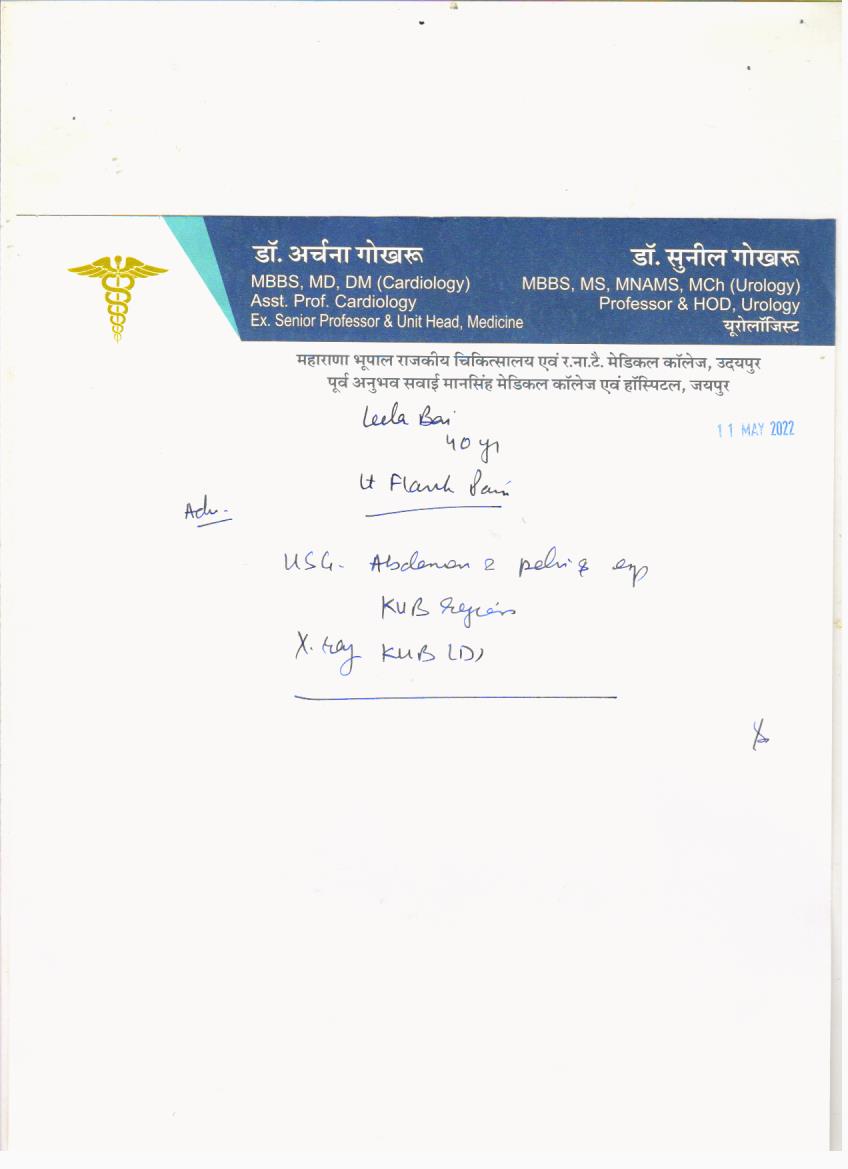 डॉ. अर्चना गोखरू
MBBS, MD, DM (Cardiology)
Asst. Prof. Cardiology
Ex. Senior Professor & Unit Head, Medicine
डॉ. सुनील गोखरू
MBBS, MS, MNAMS, MCh (Urology)
Professor & HOD, Urology
यूरोलॉजिस्ट
महाराणा भूपाल राजकीय चिकित्सालय एवं र.ना.टै. मेडिकल कॉलेज, उदयपुर
पूर्व अनुभव सवाई मानसिंह मेडिकल कॉलेज एवं हॉस्पिटल, जयपुर
Leela Bai
11 MAY 2022
40 yr
Lt Flank Pain
Adv.
USG. Abdomen & pelvis
KUB region
X.ray KUB (D)